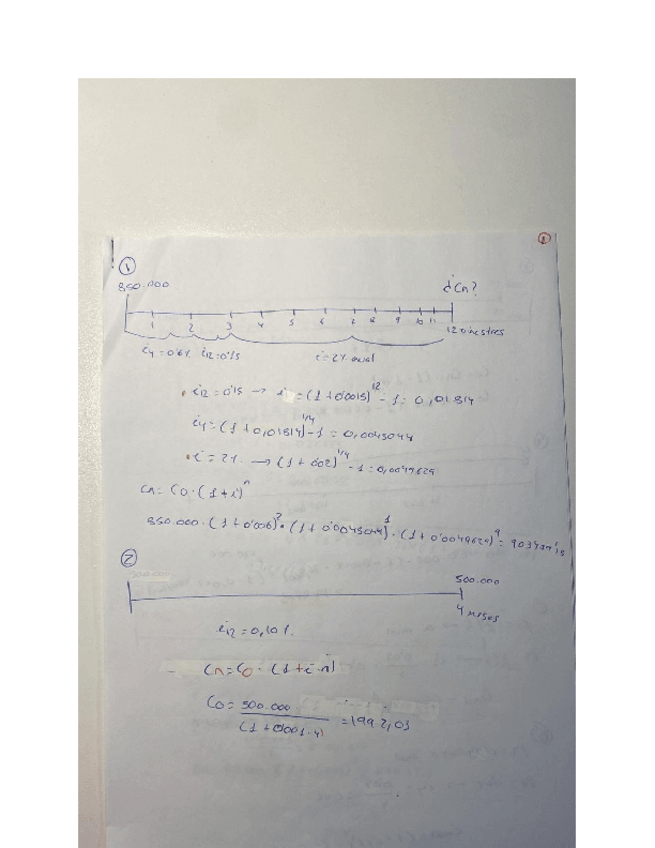 1
①
850.000 ¿Cn?
1 2 3 4 5 6 7 8 9 10 11 12 trimestres
i4 = 0'6% i12 = 0'15 i = 2% anual
• i12 = 0'15 → i = (1 + 0'0015)^12 - 1 = 0,01814
i4 = (1 + 0,01814)^1/4 - 1 = 0,0045044
• i = 2% → (1 + 0'02)^1/4 - 1 = 0,0049629
Cn = C0 · (1 + i)^n
850.000 · (1 + 0'006)^2 · (1 + 0'0045044)^1 · (1 + 0'0049629)^9 =
②
500.000 500.000
4 meses
i12 = 0,10%
- Cn = C0 · (1 + i · n)
C0 = 500.000
(1 + 0'001 · 4)